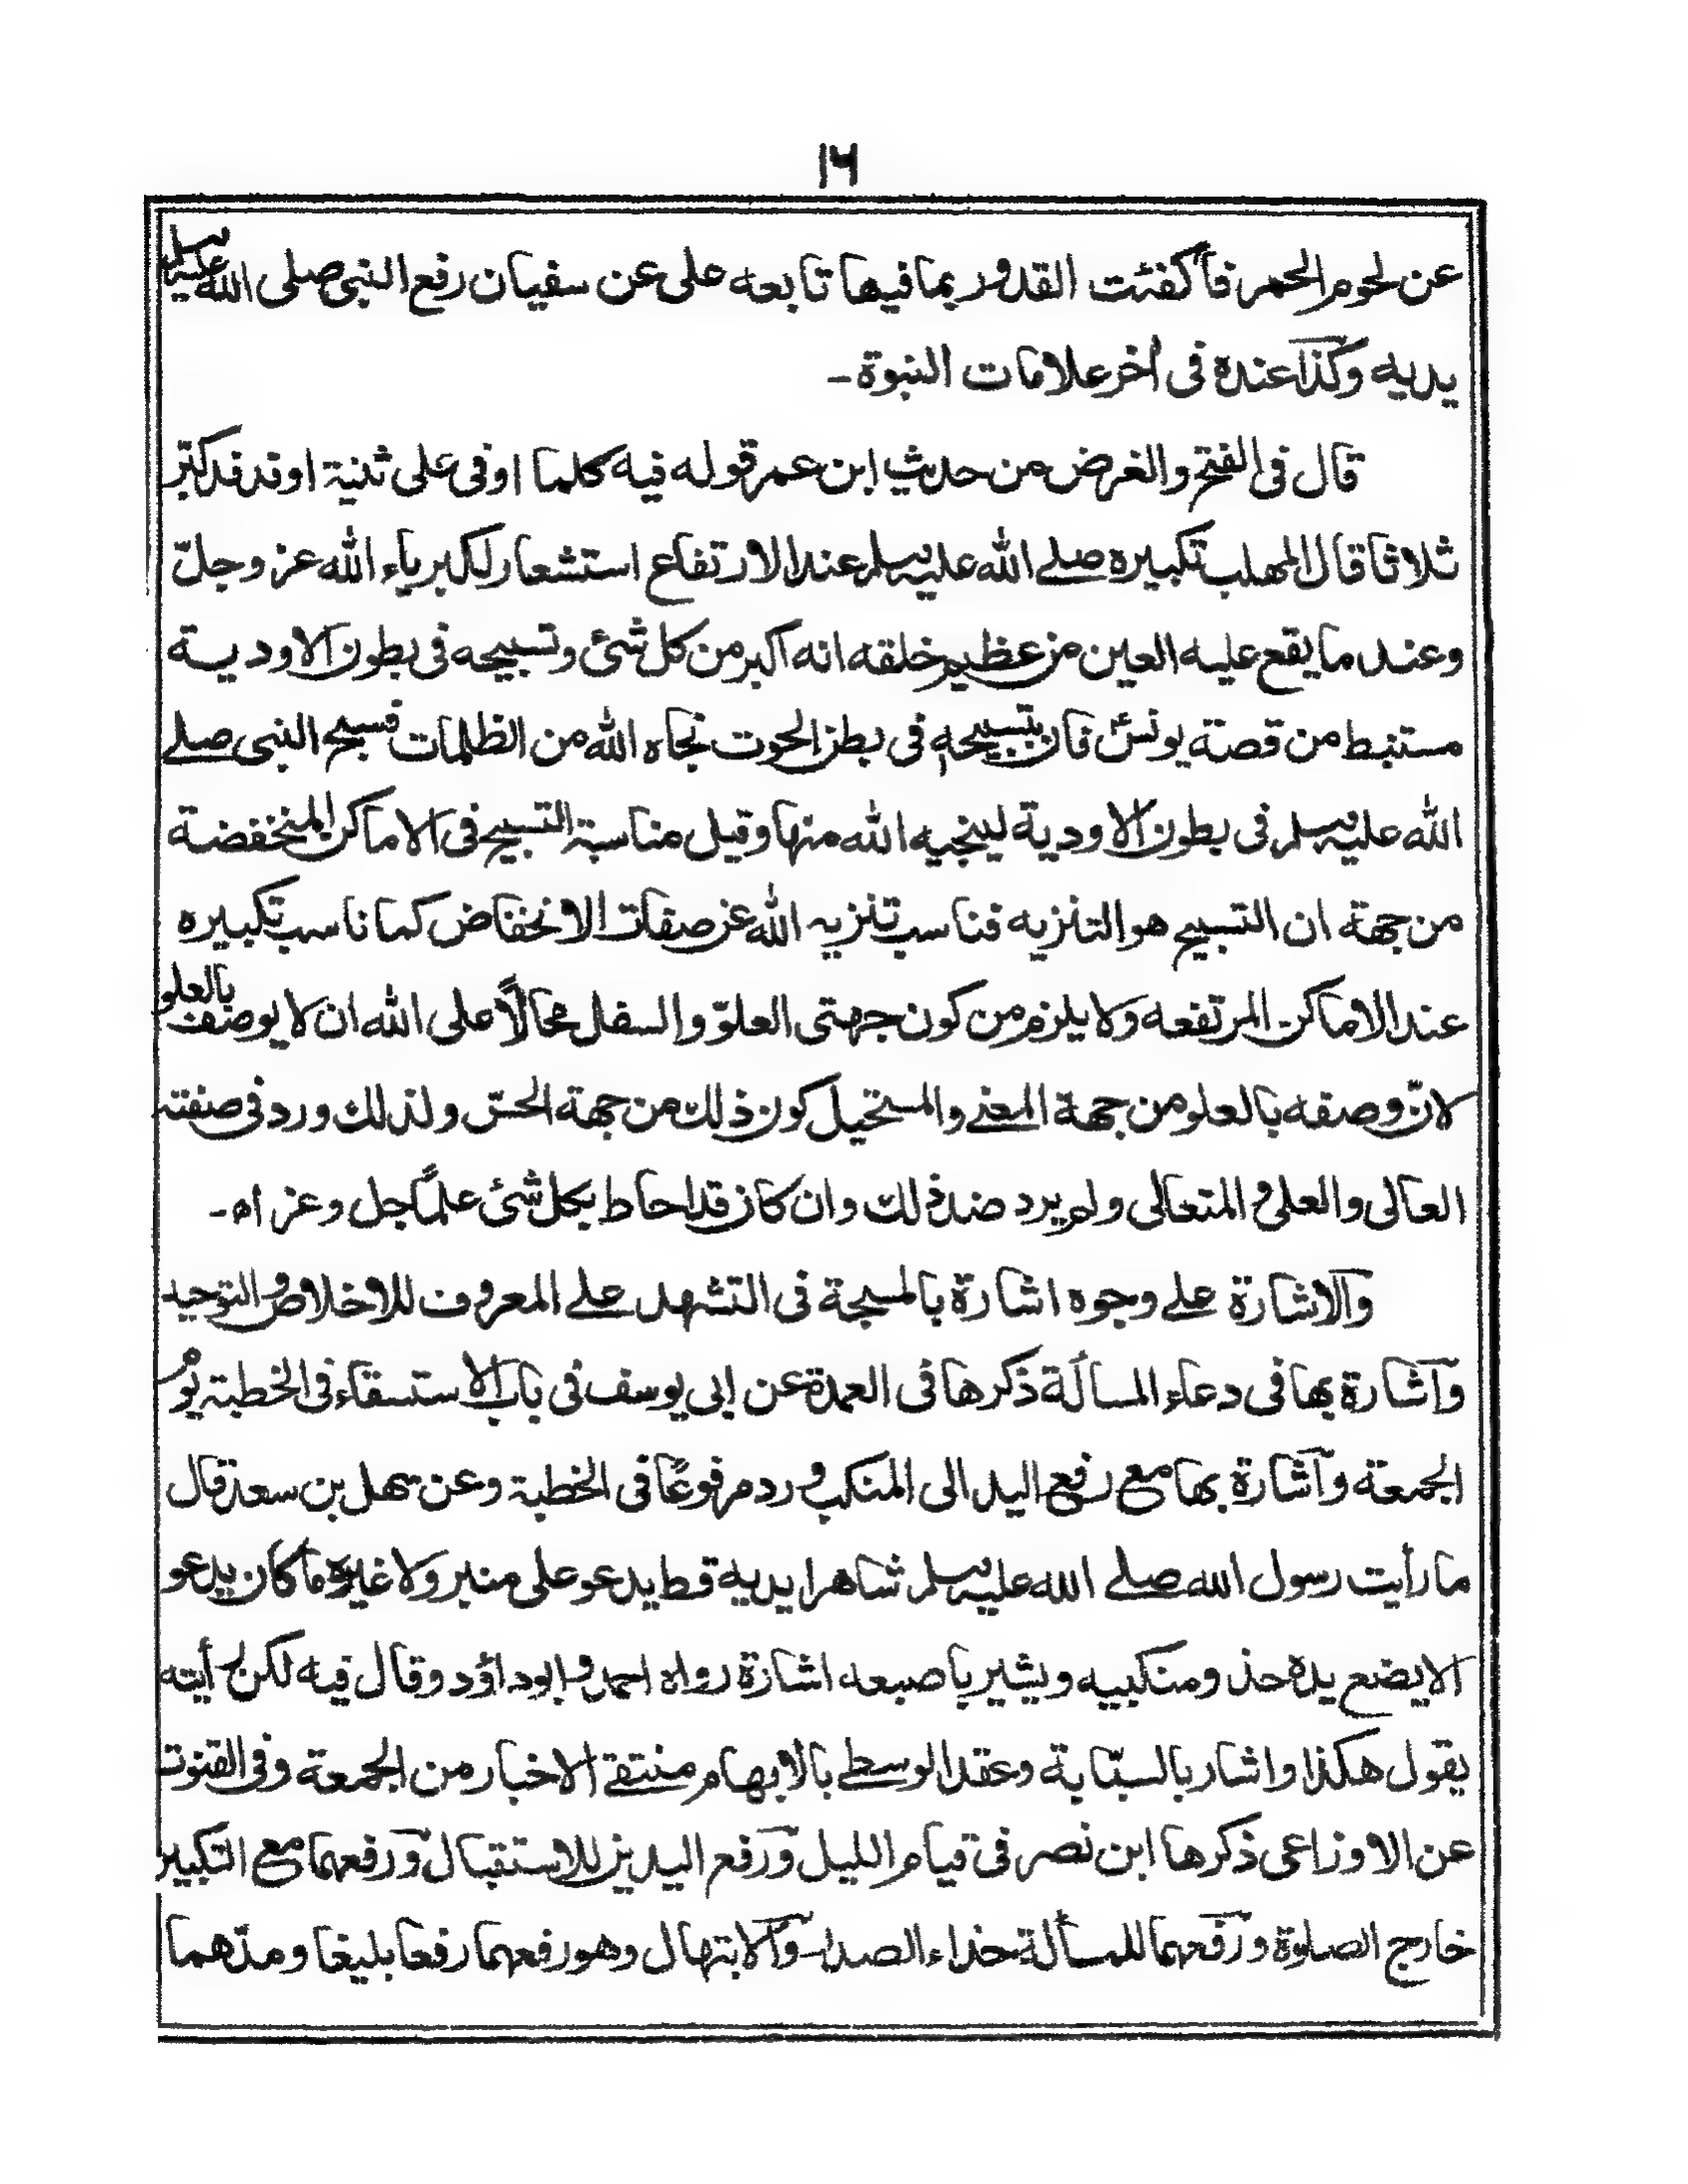 ١٦
عن لحوم الحمر فأكفئت القدور بما فيها تابعه على عن سفيان رفع النبى صلى الله عليه وسلم
يديه وكذا عنده فى أخر علامات النبوة۔
قال فى الفتح والغرض من حديث ابن عمر قوله فيه كلما اوفى على ثنية او فدفد كبّر
ثلاثا قال المهلب تكبيره صلے الله عليه وسلم عند الارتفاع استشعار لكبرياء الله عز وجلّ
وعند ما يقع عليه العين من عظيم خلقه انه اكبر من كل شئ وتسبيحه فى بطون الاودية
مستنبط من قصة يونسؑ فان بتسبيحه فى بطن الحوت نجاه الله من الظلمات فسبح النبى صلے
الله عليه وسلم فى بطون الاودية لينجيه الله منها وقيل مناسبة التسبيح فى الاماكن المنخفضة
من جهة ان التسبيح هو التنزيه فناسب تنزيه الله عن صفات الانخفاض كما ناسب تكبيره
عند الاماكن المرتفعه ولا يلزم من كون جهتى العلوّ والسفل محالاً على الله ان لا يوصف بالعلو
لانّ وصفه بالعلو من جهة المعنے والمستحيل كون ذلك من جهة الحسّ ولذلك ورد فى صفته
العالى والعلى والمتعالى ولم يرد ضد ذلك وان كان قد احاط بكل شئ علمًا جل وعز اه۔
والاشارة علے وجوه اشارة بالمسبحة فى التشهد علے المعروف للاخلاص والتوحيد
واشارة بها فى دعاء المسألة ذكرها فى العمدة عن ابى يوسف فى باب الاستسقاء فى الخطبة يوم
الجمعة واشارة بها مع رفع اليد الى المنكب ورد مرفوعًا فى الخطبة وعن سهل بن سعد قال
ما رأيت رسول الله صلے الله عليه وسلم شاهرا يديه قط يدعو على منبر ولا غيره ما كان يدعو
الا يضع يده حذو منكبيه ويشير باصبعه اشارة رواه احمد وابوداؤد وقال فيه لكن رأيته
يقول هكذا واشار بالسبّابة وعقد الوسطے بالابهام منتقے الاخبار من الجمعة وفى القنوت
عن الاوزاعى ذكرها ابن نصر فى قيام الليل ورفع اليدين للاستقبال ورفعهما مع التكبير
خارج الصلوة ورفعهما للمسألة حذاء الصدر والابتهال وهو رفعهما رفعا بليغا ومدّهما